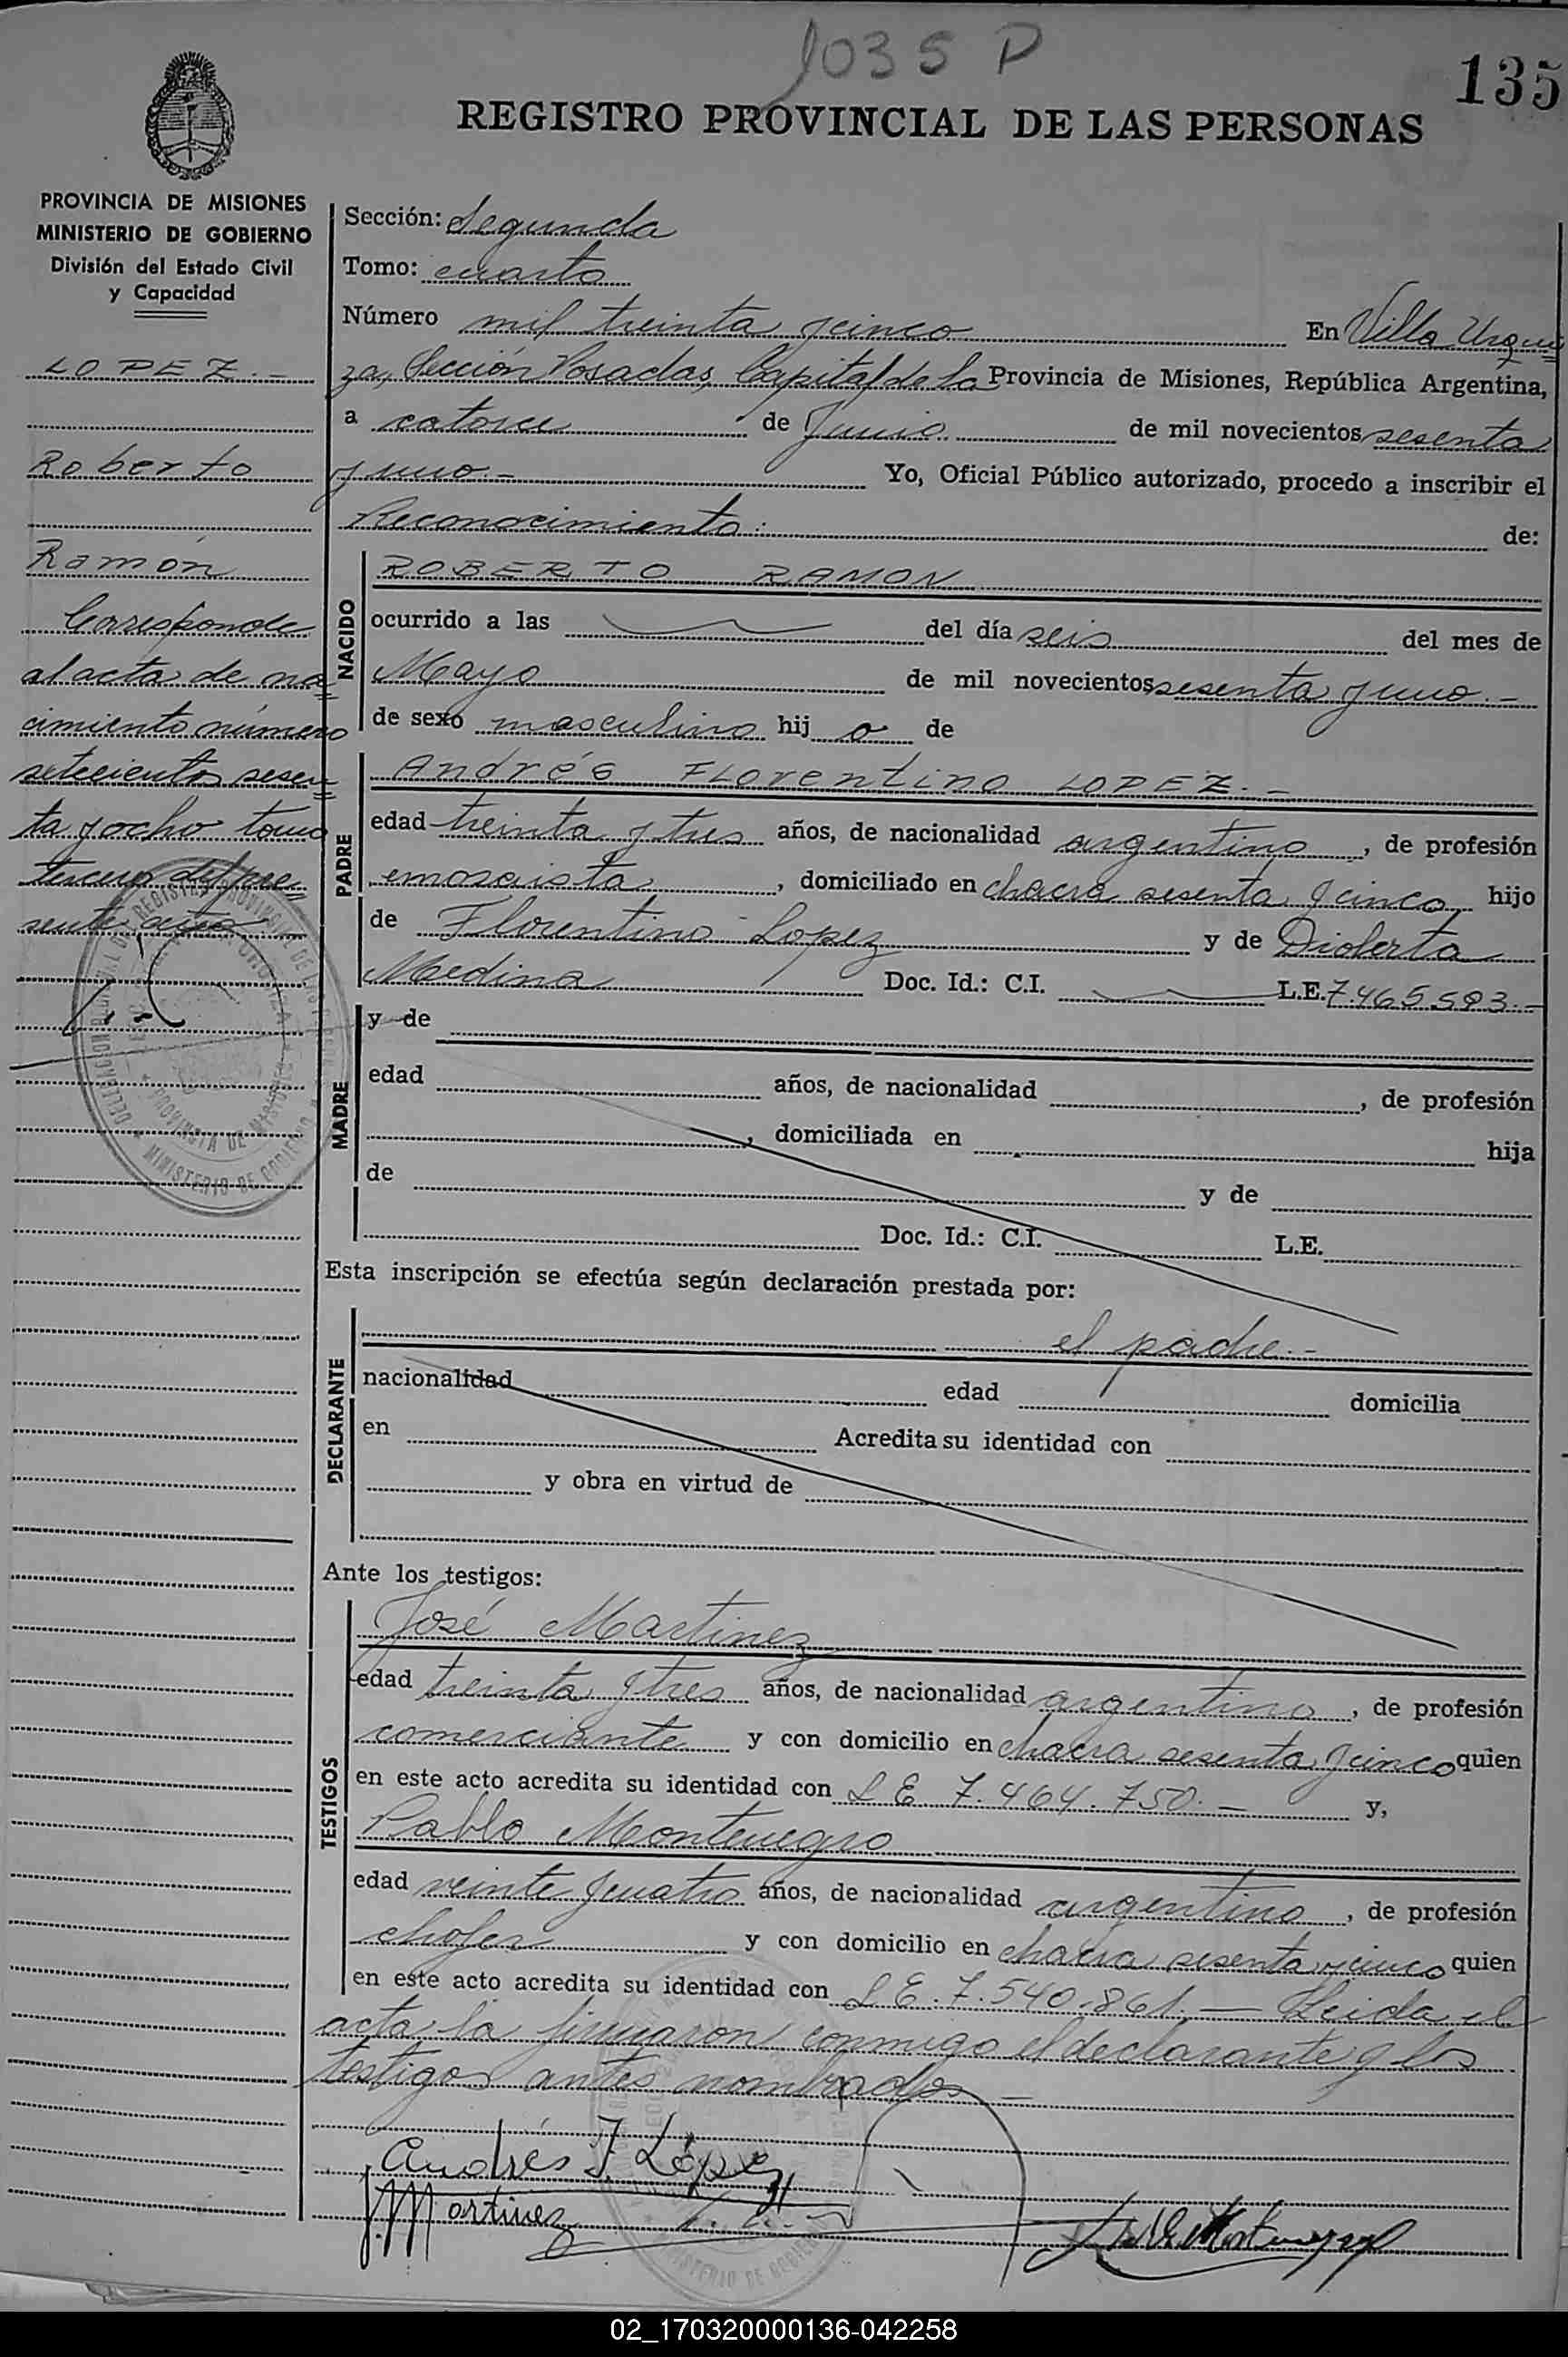 1035 P
135
REGISTRO PROVINCIAL DE LAS PERSONAS
PROVINCIA DE MISIONES
MINISTERIO DE GOBIERNO
División del Estado Civil
y Capacidad
LOPEZ.-
Roberto
Ramón
Corresponde
al acta de na=
cimiento número
setecientos sesen=
ta y ocho tomo
tercero del pre=
sente año
Sección: Segunda
Tomo: cuarto
Número mil treinta y cinco En Villa Urqui=
za, Sección Posadas, Capital de la Provincia de Misiones, República Argentina,
a catorce de Junio de mil novecientos sesenta
y uno.- Yo, Oficial Público autorizado, procedo a inscribir el
Reconocimiento: de:
NACIDO
ROBERTO RAMON
ocurrido a las del día seis del mes de
Mayo de mil novecientos sesenta y uno.-
de sexo masculino hij o de
PADRE
Andrés FLorentino LOPEZ.-
edad treinta y tres años, de nacionalidad argentino, de profesión
mosaista, domiciliado en chacra sesenta y cinco hijo
de Florentino Lopez y de Dioberta
Medina Doc. Id.: C.I. L.E. 7.465.593.-
MADRE
y de
edad años, de nacionalidad , de profesión
, domiciliada en hija
de y de
Doc. Id.: C.I. L.E.
Esta inscripción se efectúa según declaración prestada por:
DECLARANTE
el padre.-
nacionalidad edad domicilia
en Acredita su identidad con
y obra en virtud de
Ante los testigos:
TESTIGOS
José Martinez
edad treinta y tres años, de nacionalidad argentino, de profesión
comerciante y con domicilio en chacra sesenta y cinco quien
en este acto acredita su identidad con L E. 7.464.750.- y,
Pablo Montenegro
edad veinte y cuatro años, de nacionalidad argentino, de profesión
chofer y con domicilio en chacra sesenta y cinco quien
en este acto acredita su identidad con L E. 7.540.861.- Leida el
acta la firmaron conmigo el declarante y los
testigos antes nombrados.-
Andrés F. López
J. Martinez
02_170320000136-042258